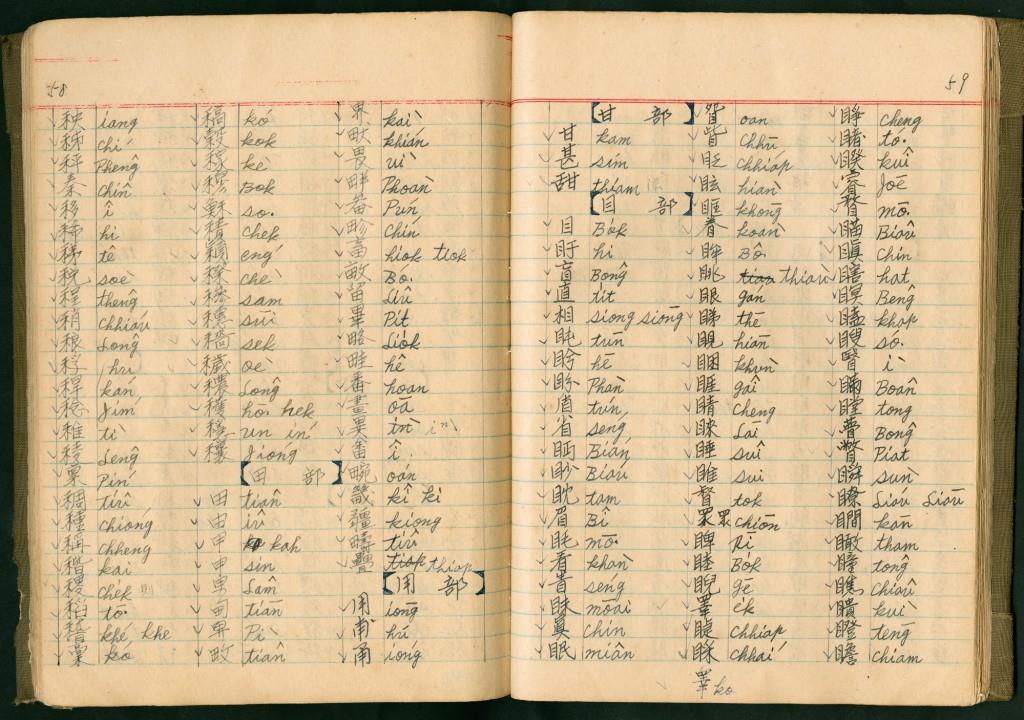 58
秧 iang
秭 chí
秤 Phēng
秦 chîn
移 î
稀 hi
稊 tê
稅 soè
程 thêng
稍 chhiáu
稂 Lông
稃 hu
稈 kán
稔 Jím
稚 tī
稜 Lêng
稟 Pín
稠 tiû
種 chióng
稱 chheng
稭 kai
稷 chek
稻 tō
稽 khé, khe
稾 ko
稿 kó
穀 kok
稼 kè
穆 Bok
穌 so.
積 chek
穎 éng
穄 chè
穇 sam
穗 sūi
穡 sek
穢 oè
穠 Lông
穫 hō. hek
穩 un ín
穰 Jióng
【田 部】
田 tiân
由 iû
甲 kah
申 sin
男 Lâm
甸 tian
畀 Pì
畋 tiân
界 kaì
畎 khián
畏 uì
畔 Phoān
畚 Pún
畛 chín
畜 hiok tiok
畝 Bó.
留 Liû
畢 Pit
略 Liok
畦 hê
番 hoan
畫 oā
異 īn
畬 î
畹 oán
畿 kî kì
疆 kiong
疇 tiû
疊 thiap
【用 部】
用 iōng
甫 hú
甬 iong
59
【甘 部】
甘 kam
甚 sím
甜 thiam
【目 部】
目 Bo̍k
盱 hi
盲 Bông
直 tit
相 siong siòng
盹 tun
盻 hē
盼 Phàn
盾 tún
省 séng
眄 Bián
眇 Biáu
眈 tam
眉 Bî
眊 mō.
看 khàn
眚 séng
眛 mōai
真 chin
眠 miân
眢 oan
眥 chhū
眨 chhiap
眩 hiàn
眶 khong
眷 koàn
眸 Bô.
眺 thiàu
眼 gan
睇 thē
睍 hian
睏 khùn
睚 gâi
睛 cheng
睞 Lāi
睡 suī
睢 sui
督 tok
眾 眾 chiòn
睥 Pī
睦 Bok
睨 gē
睪 e̍k
睫 chhiap
睬 chhaí
睪 ko
睜 cheng
睹 tó.
睽 kuî
睿 Joē
瞀 mō.
瞄 Biâu
瞋 Chin
瞎 hat
瞑 Bêng
瞌 khap
瞍 só.
瞖 ì
瞞 Boân
瞠 tong
瞢 Bông
瞥 Piat
瞬 sùn
瞭 Liáu Liāu
瞷 kan
瞰 tham
瞳 tông
瞧 chiâu
瞶 kuì
瞪 tēng
瞻 chiam